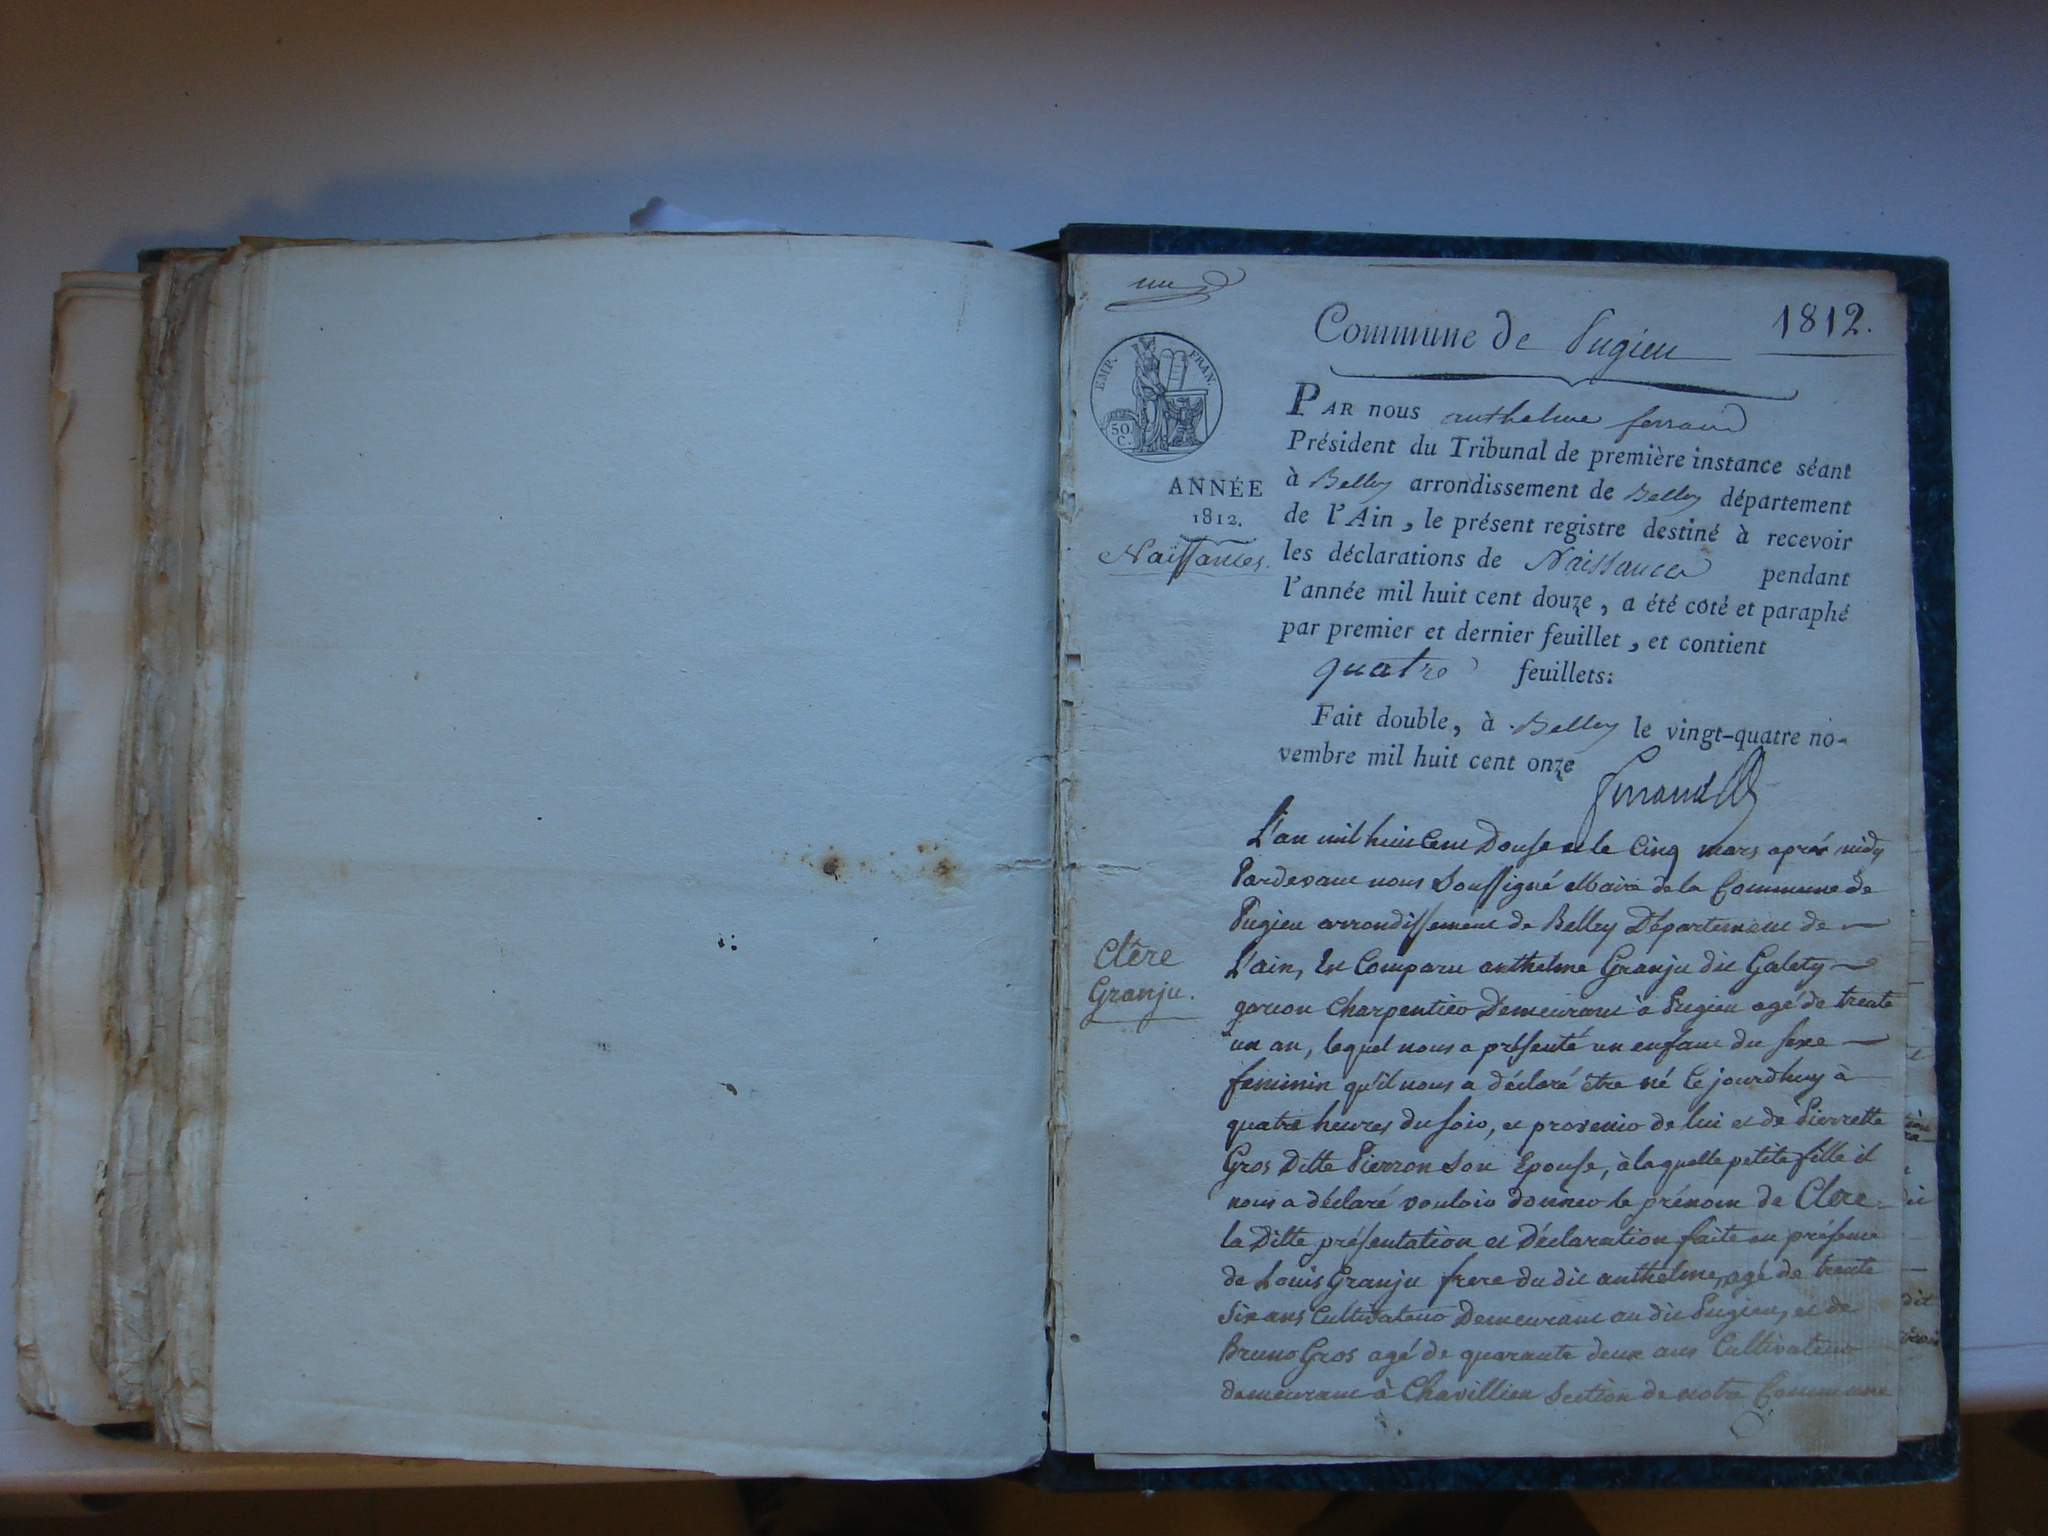 une
1812.
Commune de Pugieu
EMP. FRAN.
50
C.
ANNÉE
1812.
Naissances.
PAR nous anthelme ferrand
Président du Tribunal de première instance séant
à Belley arrondissement de Belley département
de l'Ain, le présent registre destiné à recevoir
les déclarations de Naissances pendant
l'année mil huit cent douze, a été coté et paraphé
par premier et dernier feuillet, et contient
quatre feuillets:
Fait double, à Belley le vingt-quatre no-
vembre mil huit cent onze
Ferrand
Clère
Granju.
L'an mil huit Cent Douse et le Cinq mars aprés midy
Pardevant nous Soussigné Maire de la Commune de
Pugieu arrondissement de Belley Département de
L'ain, Est Comparu anthelme Granju dit Galety
garcon Charpentier Demeurant à Pugieu agé de trente
un an, lequel nous a présenté un enfant du sexe
feminin qu'il nous a déclaré être né Ce jourdhuy à
quatre heures du soir, et provenir de lui et de Pierrette
Gros Ditte Pierron Son Epouse, à laquelle petite fille il
nous a déclaré vouloir donner le prénom de Clere
la Ditte présentation et Déclaration faite en présence
de Louis Granju frere du dit anthelme, agé de trente
Six ans Cultivateur Demeurant au dit Pugieu, et de
Bruno Gros agé de quarante deux ans Cultivateur
demeurant à Chavillieu Section de notre Commune